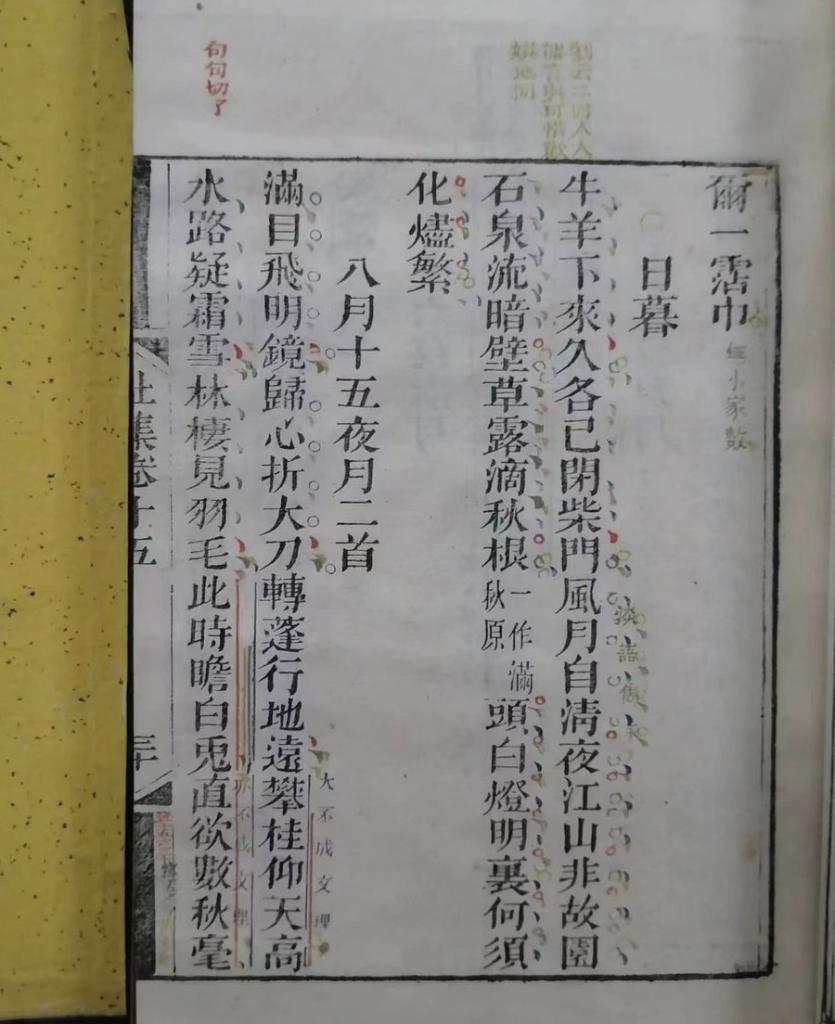 句句切了
劉云二句人人
爾一霑巾
日暮
牛羊下來久各已閉柴門風月自清夜江山非故園
石泉流暗壁草露滴秋根一作滿秋原頭白燈明裏何須
化燼繁
八月十五夜月二首
滿目飛明鏡歸心折大刀轉蓬行地遠攀桂仰天高
大不成文理
水路疑霜雪林棲見羽毛此時瞻白兎直欲數秋毫
亦不成文理
杜集卷十五